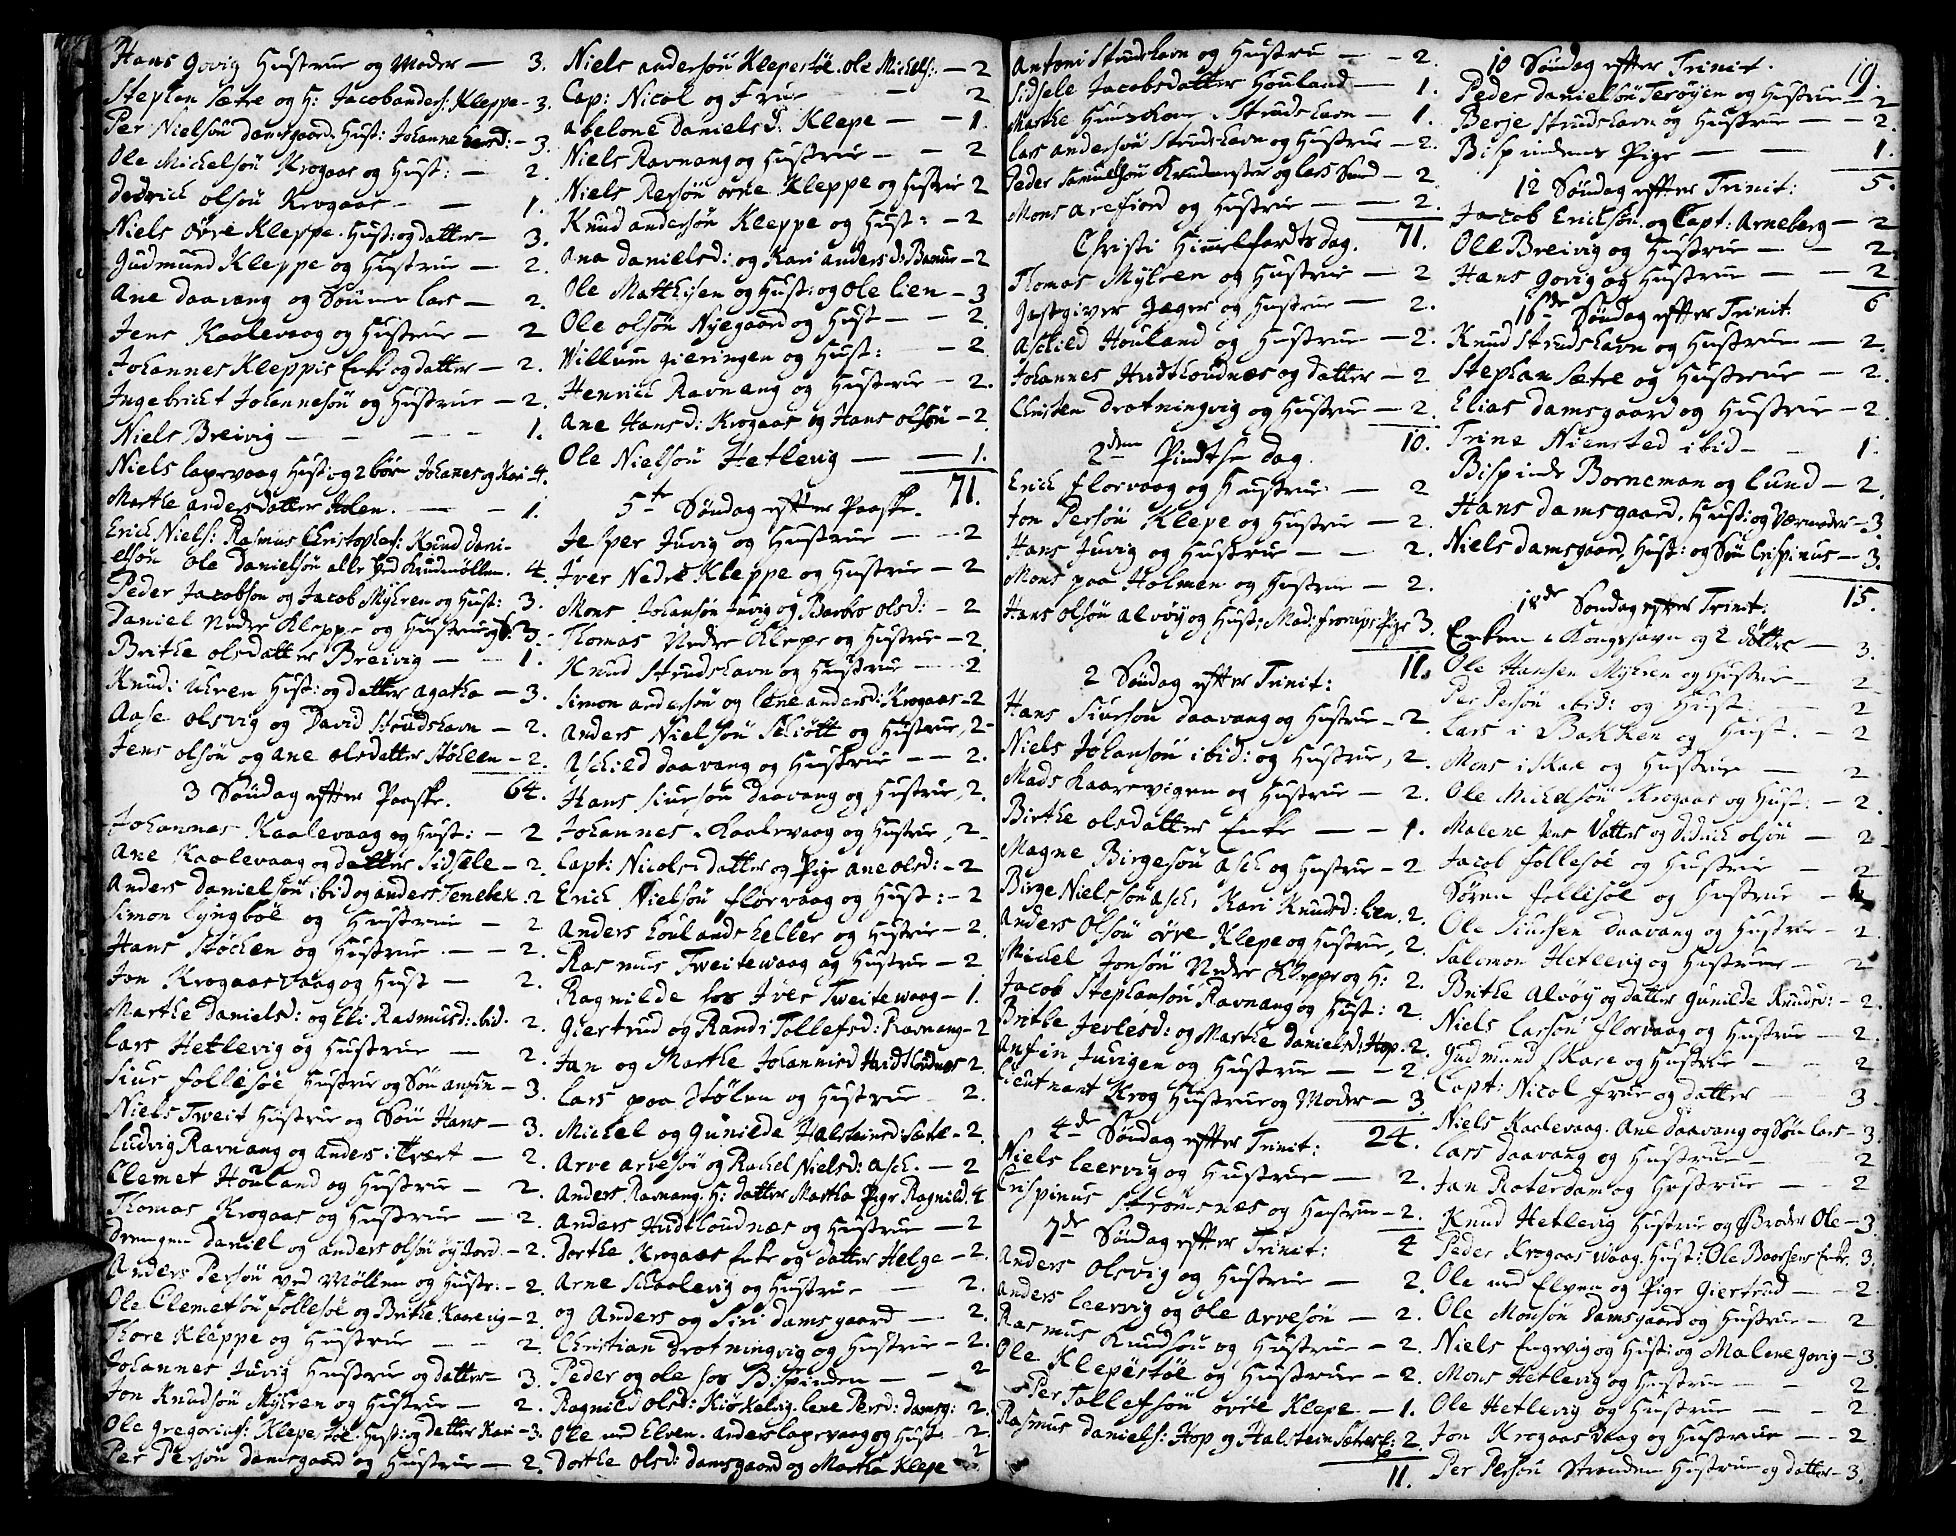 Hans Govig Hustrue og Moder — 3.
Stephen Sætre og H: Jacob anders: Kleppe — 3.
Per Nielsön Damsgaard. Hust: Johanne Larsd: — 3.
Ole Michelsön Krogaas og Hust: — 2.
Dedrich olsön Krogaas — 1.
Niels övre Kleppe. Hust: og datter — 3.
Gudmund Kleppe og Hustrue — 2.
Ane Daavang og Sönnen Lars — 2.
Jens Kaalevaag og Hustrue — 2
Johannes Kleppis Enke og datter — 2.
Ingebricht Johannesön og Hustrue — 2.
Niels Breivig — 1.
Niels Laxevaag Hust: og 2 bör Johanes og Kari — 4.
Marthe andersdatter Holen. — 1.
Erich Niels: Rasmus Christophes: Knud Dani-
elsön ole Danielsön alle ved Krudmöllen. 4.
Peder Jacobsön og Jacob Myhren og Hust: 3.
Daniel Nedre Kleppe og Hustrue og 3.
Brithe olsdatter Breivig — 1.
Knud i Uhren Hust: og datter agatha — 3.
Aase olsvig og David Strudshavn — 2.
Jens olsön og ane olsdatter Stöhlen — 2.
3 Söndag efter Paaske. 64.
Johannes Kaalevaag og Hust: — 2
Ane Kaalevaag og datter Sidsele — 2.
Anders Danielsön ibid og anders Tenebek 2
Simon Lyngböe og Hustrue — 2
Hans Stöhlen og Hustrue — 2.
Jon Krogaasvaag og Hust — 2.
Marthe Daniels d: og Eli Rasmusd: ibid. 2.
Lars Hetlevig og Hustrue — 2.
Siur Follesöe Hustrue og Sön anfin — 3.
Niels Tweit Hustrue og Sön Hans — 3.
Ludvig Ravnang og anders i Kvært — 2.
Clemet Houland og Hustrue — 2.
Thomas Krogaas og Hustrue — 2.
Drengen Daniel og anders olsön öyjord. — 2.
Anders Persön ved Möllen og Hustr: — 2.
Ole Clemetsön Follesöe og Brithe Kaarevig — 2.
Thore Kleppe og Hustrue — 2.
Johannes Juvig Hustrue og datter — 3.
Jon Knudsön Myhren og Hustrue — 2.
Ole Gregorius: Klepestöe. Hust: og datter Kari — 3.
Per Persön Damsgaard og Hustrue — 2.
Niels andersön Klepestöe. ole Michels: — 2
Cap: Nicol og Frue — 2
abelone Daniels d: Klepe — 1.
Niels Ravnang og Hustrue — 2
Niels Persön övre Kleppe og Hustrue 2
Knud andersön Kleppe og Hust: — 2
Ana Danielsd: og Kari anders d: — 2
Ole Mathisen og Hust: og Ole Lien — 3
Ole olsön Nyegaard og Hust — 2.
Willum gieringen og Hust: — 2
Henrich Ravnang og Hustrue — 2.
Ane Hansd: Krogaas og Hans olsön — 2.
Ole Nielsön Hetlevig — 1.
5te Söndag efter Paaske. 71.
Jesper Juvig og Hustrue — 2
Iver Nedre Kleppe og Hustrue — 2
Mons Johansön Juvig og Barbro olsd: — 2
Thomas Nedre Klepe og Hustrue — 2.
Knud Strudshavn og Hustrue — 2
Simon andersön og Lene andersd: Krogaas — 2
Anders Nielsön Skiött og Hustrue, 2
Aschild Daavang og Hustrue — 2.
Hans Siursön Daavang og Hustrue, 2.
Johannes Kaalevaag og Hustrue, 2
Capt: Nicols datter og Pige Ane olsd: — 2
Erich Nielsön florvaag og Hust: — 2
Anders Houlands heller og Hustrue — 2.
Rasmus Tweitewaag og Hustrue — 2
Ragnilde hos Iver Tweitewaag — 1.
Giertrud og Randi Tollefsd: Ravnang — 2
Jan og Marthe Johannisd Haudthoudnes 2.
Lars paa Stölen og Hustrue 2.
Michel og Gunilde Halsteinsd: Sætre — 2.
Arve arvesön og Rachel Nielsd: asch. — 2
Anders Ravnang. H: datter Martha Pige Ragnild. 4
Anders Hudthoudnæs og Hustrue — 2
Dorthe Krogaas Enke og datter Helge — 2.
Arne Skaalevig og Hustrue — 2.
og Anders og Siri Damsgaard — 2.
Christian Drotningvig og Hustrue — 2.
Peder og ole hos Bispinden — 2
Ragnild olsd: Kiökelvig. Lene Persd: Damsg: 2.
Ole ved Elven. anders Laxevaag og Hust 2
Dorthe olsd: Damsgaard og Martha Klepe 2
Antoni Strudshavn og Hustrue — 2.
Sidsele Jacobsdatter Houland — 1.
Marthe i Strudshavn — 1.
Lars andersön Strudshavn og Hustrue — 2.
Peder Samuelsön Krudmester og Lars Sund — 2.
Mons arefiord og Hustrue — 2.
Christi Himmelfardts dag. 71.
Thomas Myhren og Hustrue — 2
Gastgiver Jæger og Hustrue — 2.
Aschild Houland og Hustrue — 2.
Johannes Hudthoudnæs og datter — 2
Christen Drotningvig og Hustrue — 2.
2den Pindtse dag. 10.
Erich Florvaag og Hustrue — 2
Jon Persön Klepe og Hustrue — 2.
Hans Juvig og Hustrue — 2.
Mons paa Holmen og Hustrue — 2.
Hans olsön alvöy og Hust; Mad: Pige 3.
2 Söndag efter Trinit: 11.
Hans Siursön Daavang og Hustrue — 2
Niels Johansön ibid: og Hustrue, 2.
Mads Kaarevigen og Hustrue — 2.
Birthe olsdatter Enke — 1.
Magne Birgesön Asch og Hustrue — 2
Birge Nielssön Asch, Kari Knudsd: Lien. 2.
Anders Olsön övre Klepe og Hustrue, 2.
Michel Jonsön Nedre Kleppe og H: 2.
Jacob Stephansön Ravnang og Hust: 2.
Brithe Jerlesd: og Marthe Danielsd: Hop. 2.
Anfin Juvigen og Hustrue — 2.
Lieutnant Krog Hustrue og Moder — 3.
4de Söndag efter Trinit: 24.
Niels Leervig og Hustrue — 2.
Crispinus Strömsnes og Hustrue — 2.
7de Söndag efter Trinit: 4
Anders Olsvig og Hustrue — 2.
Anders Leervig og ole arvesön — 2.
Rasmus Knudsön og Hustrue — 2.
Ole Klepestöe og Hustrue — 2.
Per Tollefsön övre Klepe — 1.
Rasmus Daniels: Hop og Halstein Sætres E: 2.
11.
19.
10 Söndag efter Trinit.
Peder Danielsön Teröyen og Hustrue — 2
Berje Strudshavn og Hustrue — 2.
Bispindens Pige — 1.
12 Söndag efter Trinit: 5.
Jacob Erichsön. og Capt: Arneberg — 2
Ole Breivig og Hustrue — 2.
Hans Govig og Hustrue — 2
16de Söndag efter Trinit: 6
Knud Strudshavn og Hustrue — 2.
Stephan Sætre og Hustrue — 2.
Elias Damsgaard og Hustrue — 2.
Trine Niensted ibid — 1.
Bispinde Borneman og Lund — 2.
Hans Damsgaard, Hust: og Værmoder — 3.
Niels Damsgaard, Hust: og Sön Crispinus — 3.
18de Söndag efter Trinit: 15.
Enken i Kongshavn og 2 döttre — 3.
Ole Hansen Myhren og Hustrue — 2
Per Persön ibid: og Hust: 2
Lars i Bakken og Hust. — 2
Mons i Skare og Hustrue — 2
Ole Michelsön Krogaas og Hust: — 2.
Malene Jens Datter og Didrich olsön — 2
Jacob Follesöe og Hustrue — 2
Sören Follesöe og Hustrue —
Ole Siursen Daavang og Hustrue — 2
Salomon Hetlevig og Hustrue — 2
Brithe Alvöy og datter Gunilde Knudsd: — 2.
Niels Larsön Florvaag og Hustrue — 2.
Gudmund Skare og Hustrue — 2
Capt: Nicol Frue og datter — 3
Niels Kaalevaag. Ane Daavang og Sön Lars — 3.
Lars Daavang og Hustrue — 2
Jan Roterdam og Hustrue — 2
Knud Hetlevig Hustrue og Broder Ole — 3.
Peder Krogaasvaag. Hust: Ole Enke 3.
Ole ved Elven og Pige Giertrud — 2.
Ole Monsön Damsgaard og Hustrue — 2
Niels Engevig og Hust: og Malene govig — 3.
Mons Hetlevig og Hustrue — 2
Ole Hetlevig og Hustrue — 2
Jon Krogaas Vaag og Hustrue — 2
Per Persön Stranden Hustrue og datter — 3.